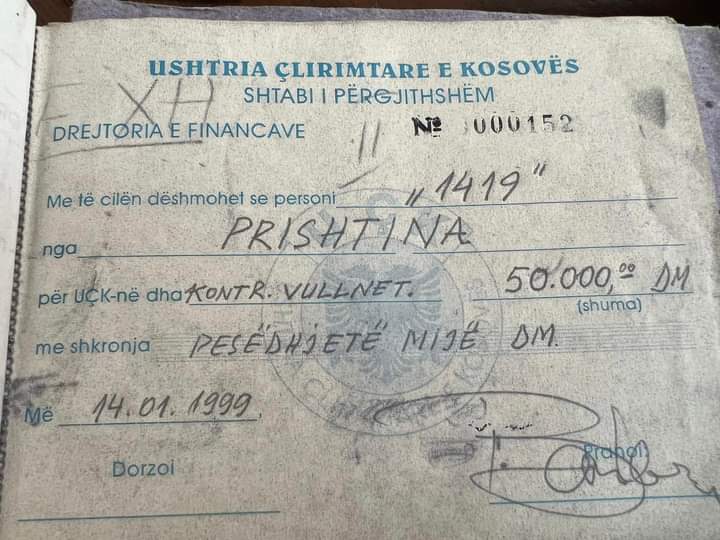 USHTRIA ÇLIRIMTARE E KOSOVËS
SHTABI I PËRGJITHSHËM
XH
DREJTORIA E FINANCAVE № 000152
Me të cilën dëshmohet se personi „1419"
nga PRISHTINA
për UÇK-në dha KONTR. VULLNET. 50.000,00 DM
(shuma)
me shkronja PESËDHJETË MIJË DM.
Më 14.01.1999.
Dorzoi Pranoi